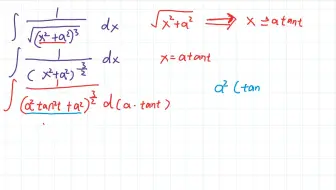 ∫ 1/√((x²+a²)³) dx √(x²+a²) ⟹ x = a tant
∫ 1/(x²+a²)^(3/2) dx x = a tant
∫ 1/(a²tan²t + a²)^(3/2) d(a·tant) a²(tan